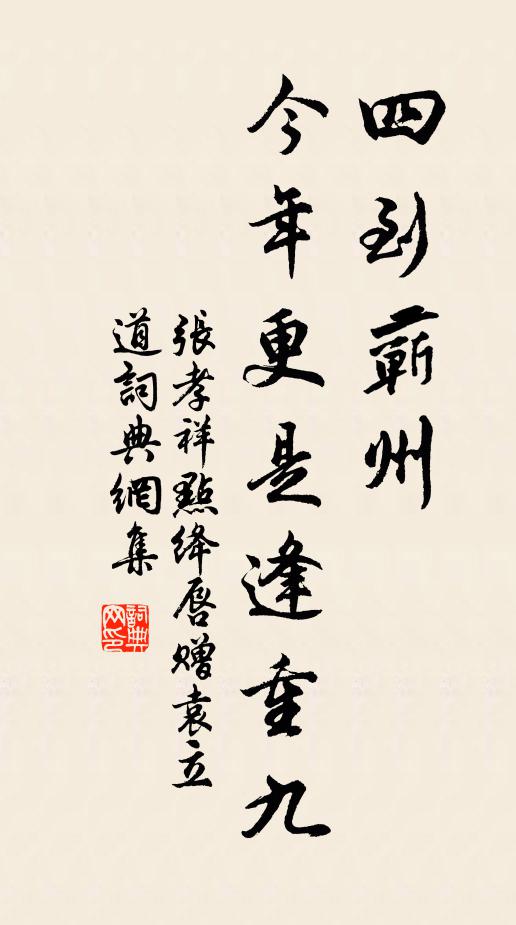 四到蘄州
今年更是逢重九
張孝祥點絳唇贈袁立
道詞典網集
詞典
网印